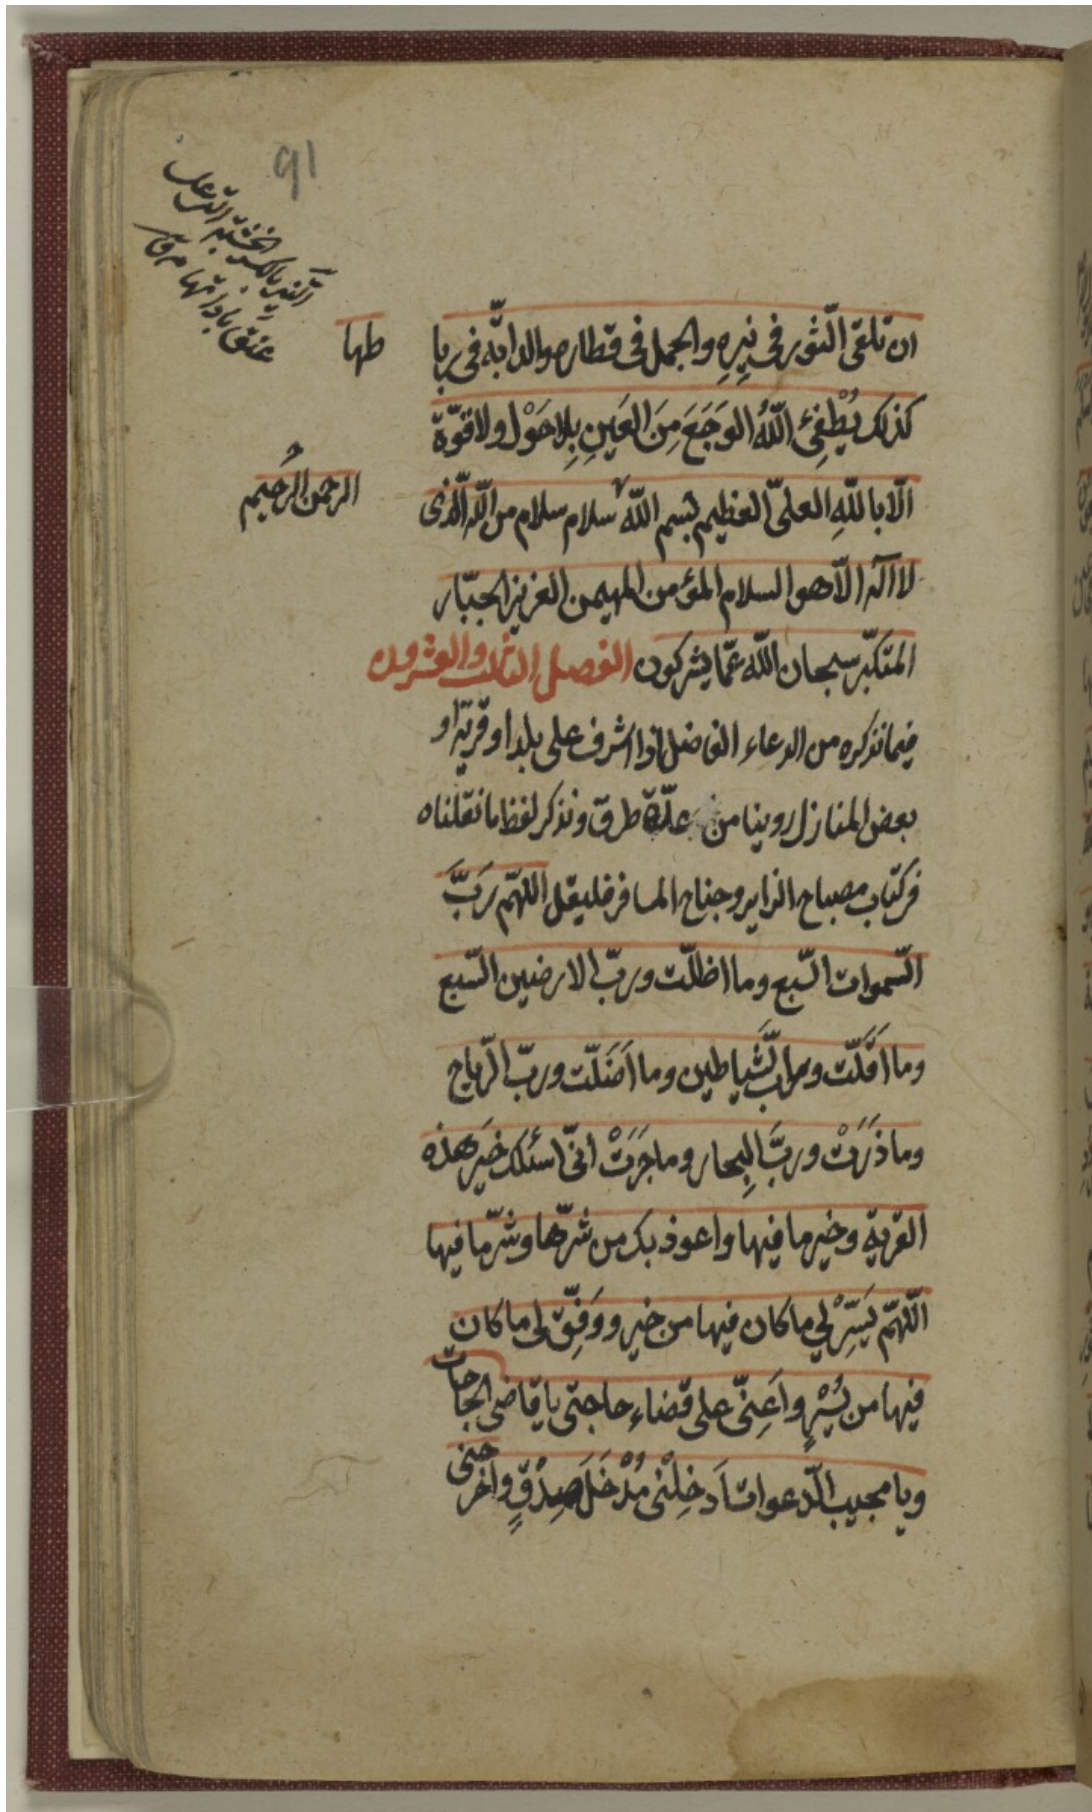 91
النير بالكسر الخشبة التي على
عنق الثور بأداتها م ق
ان تلقى الثور فى نِيرِهِ والجمل فى قطاره والدابّه فى ربا طها
كذلك يُطْفِئُ اللّهُ الوَجَعَ مِنَ العَينِ بِلا حَوْل ولا قوّة
الّا باللّهِ العلىّ العظيم بسم اللّه الرحمن الرحيم سلام سلام من اللّه الّذى
لا اله الاّ هو السلام المؤمن المهيمن العزيز الجبّار
المتكبّر سبحان اللّه عمّا يشركون الفصل الثالث والعشرون
فيما نذكره من الدعاء الفاضل اذا اشرف على بلد او قرية او
بعض المنازل روينا من عدّة طرق ونذكر لفظ ما نقلناه
فى كتاب مصباح الزاير وجناح المسافر فليقل اللهمّ رَبَّ
السّموات السّبع وما اظلّت وربّ الارضين السّبع
وما اَقَلَّت وربّ الشَّياطين وما اَضَلّت وربّ الرّياح
وما ذَرَتْ وربَّ البِحار وما جَرَتْ انّى اسئلك خَيرَ هذه
القرية وخير ما فيها واعوذ بك من شرّها وشرّ ما فيها
اللّهمّ يَسِّرْ لي ما كان فيها من خير ووَفِّق لى ما كان
فيها من يُسْرٍ واَعِنّى على قضاء حاجتى يا قاضى الحاجات
ويا مجيب الدّعوات اَدخِلْنى مُدْخَلَ صِدْقٍ واخرجنى